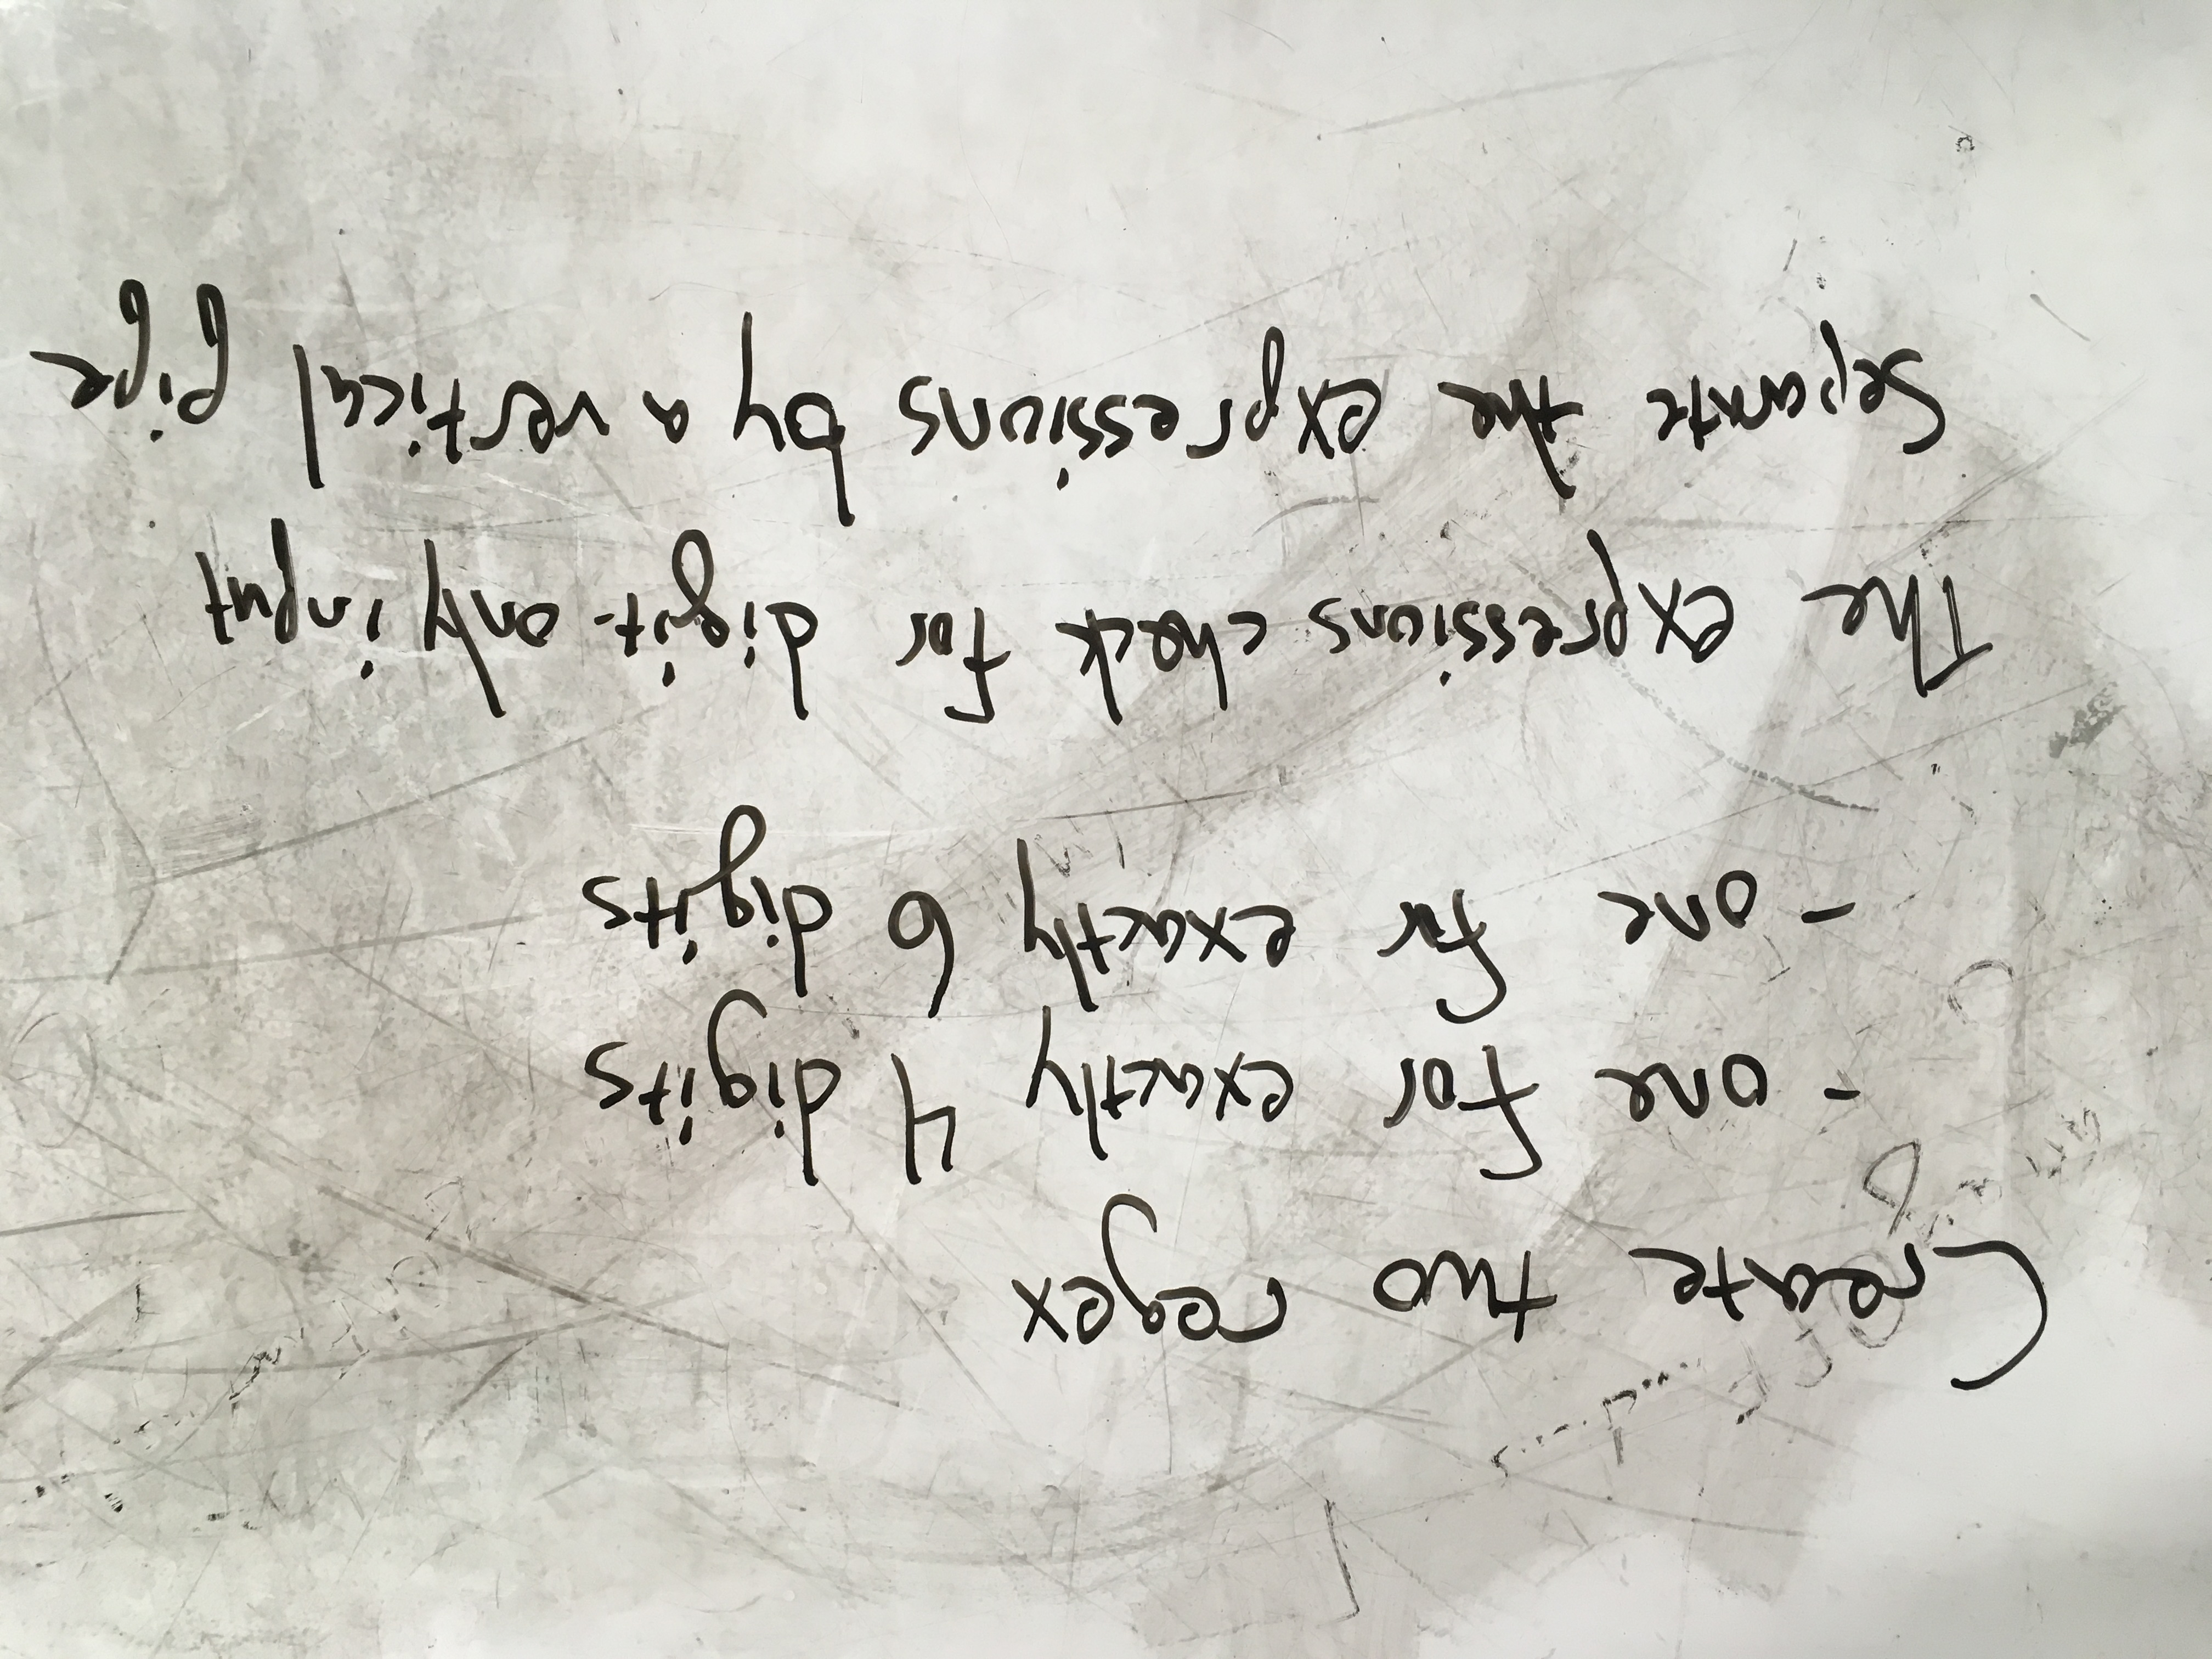 Create two regex
- one for exactly 4 digits
- one for exactly 6 digits
The expressions check for digit-only input
Separate the expressions by a vertical pipe